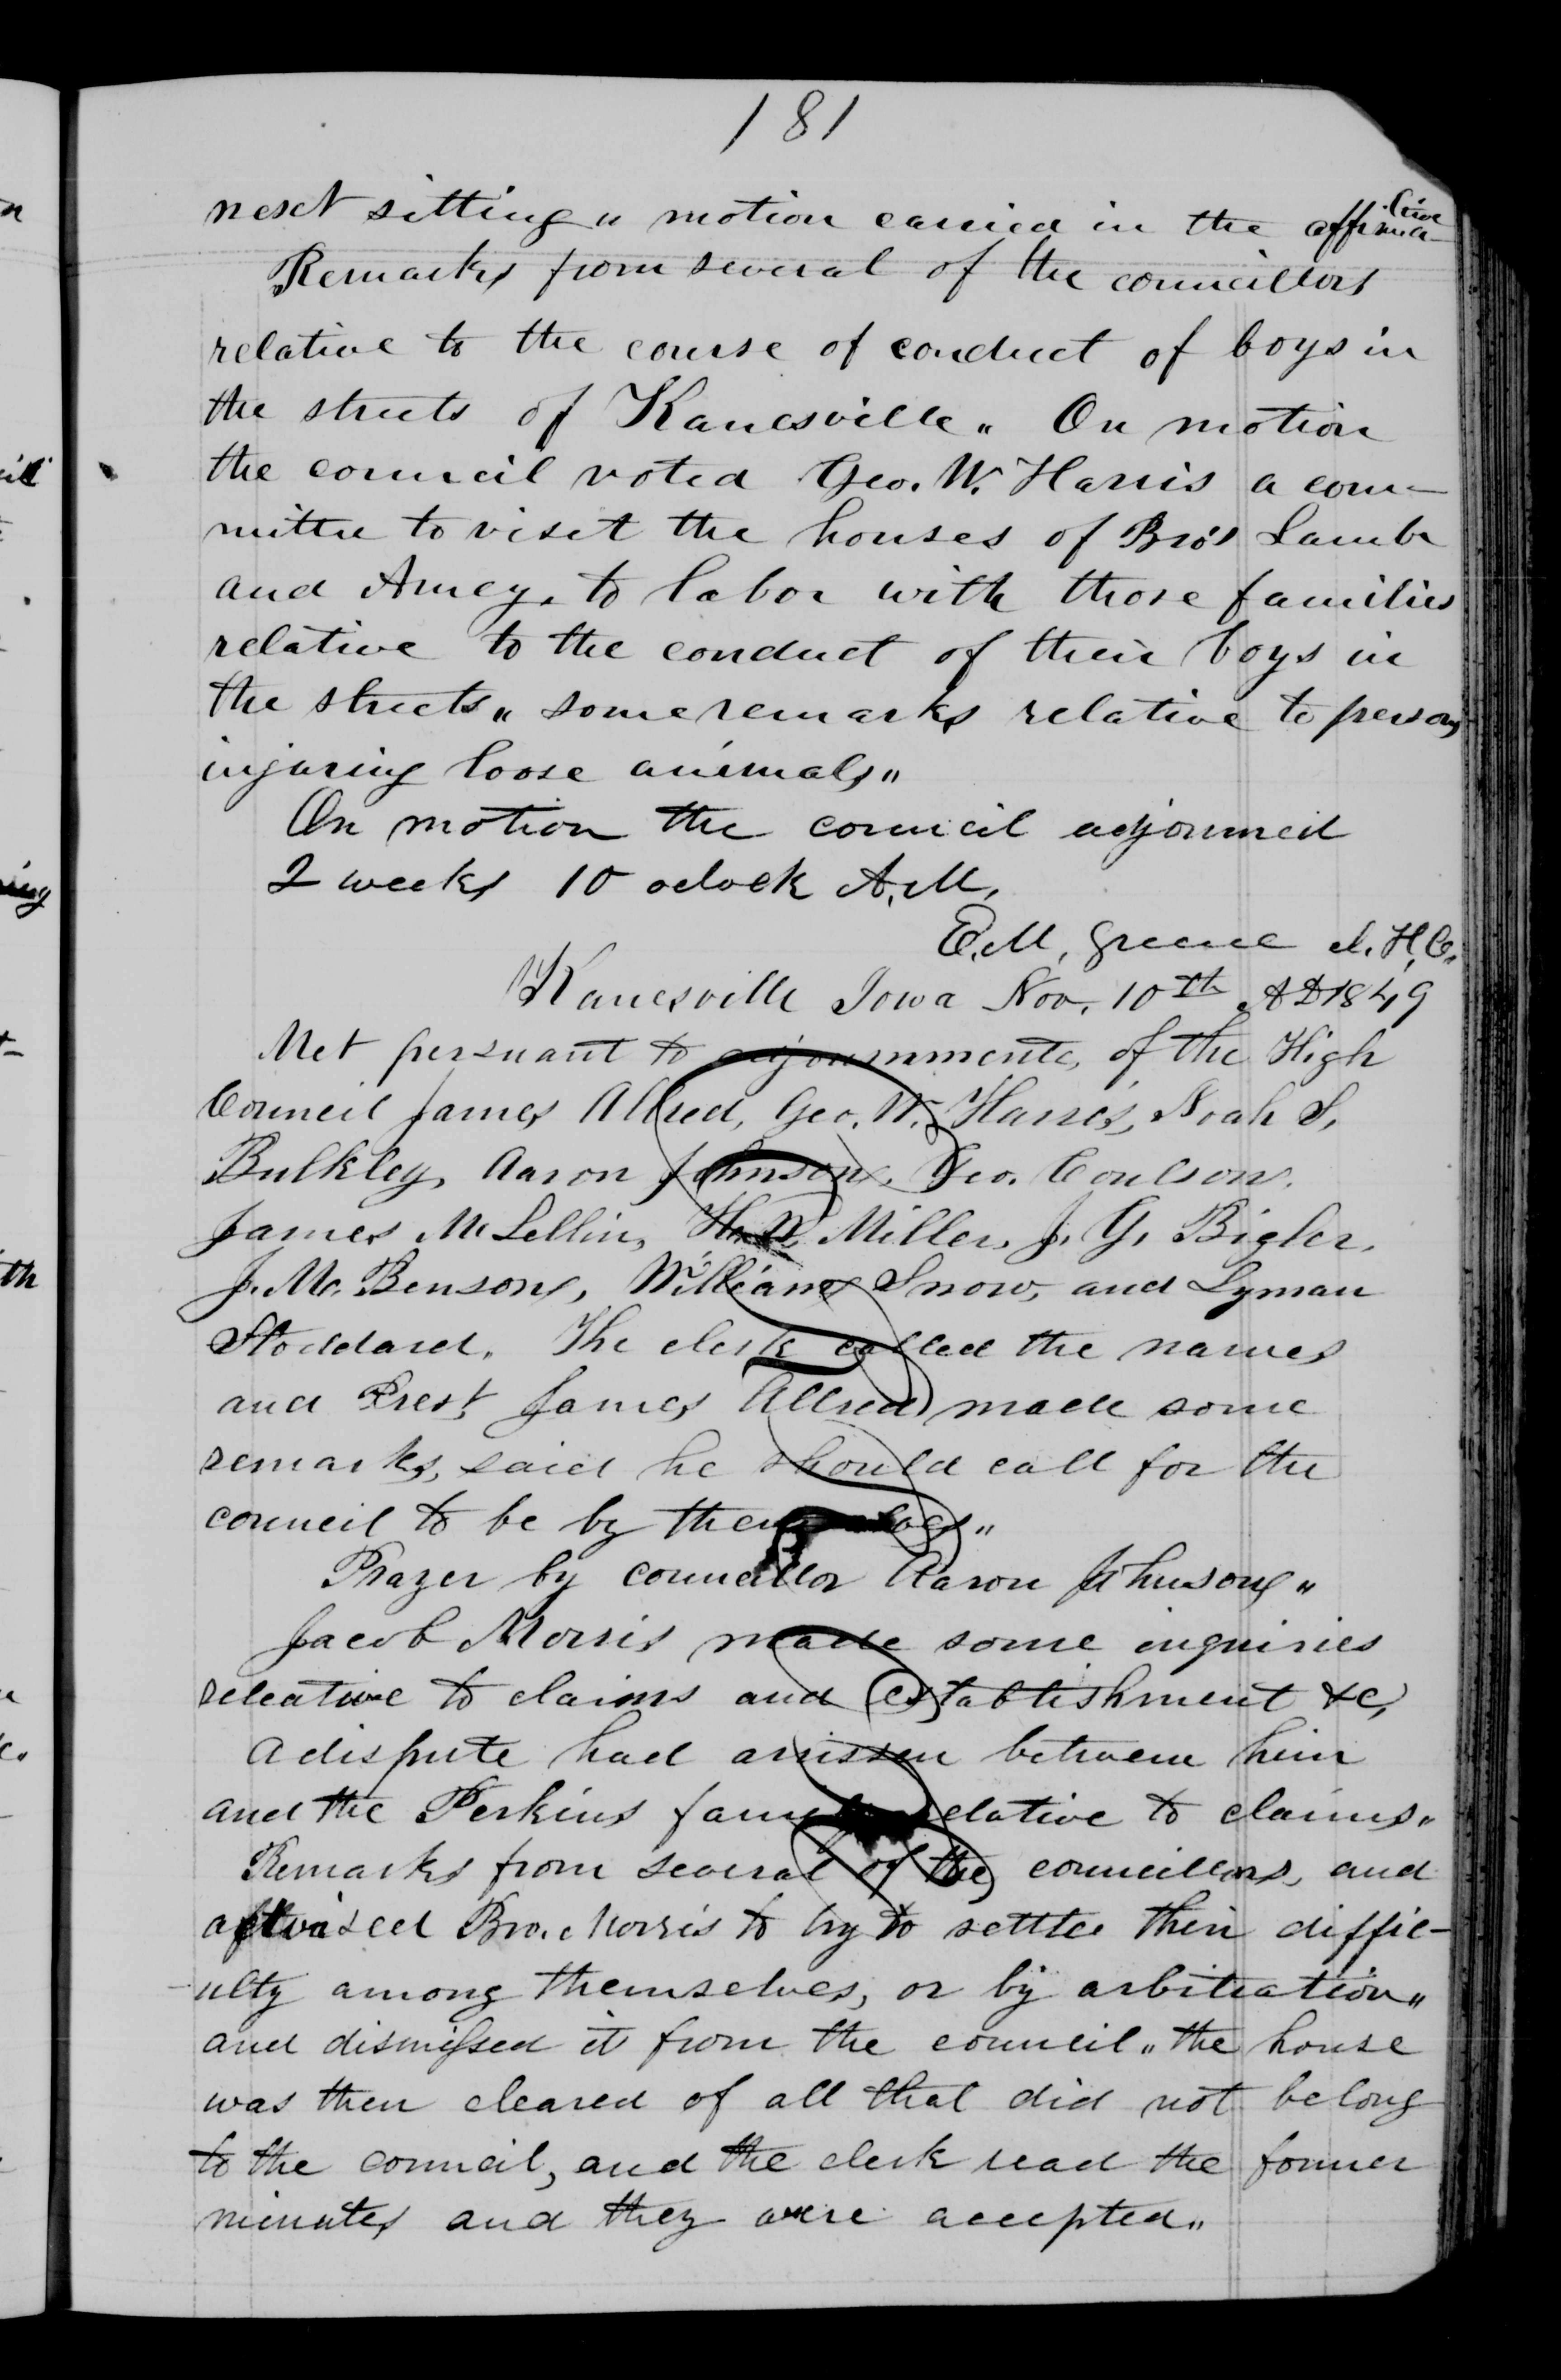 181
next sitting " motion carried in the affirmative
Remarks from several of the councillors
relative to the course of conduct of boys in
the streets of Kanesville " On motion
the council voted Geo. W. Harris a com-
mittee to visit the houses of Bro's Lamb
and Amey, to labor with those families
relative to the conduct of their boys in
the streets " some remarks relative to persons
injuring loose animals "
On motion the council adjourned
2 weeks 10 oclock A.M,
E. M, Greene H, C,
Kanesville Iowa Nov, 10th AD 1849
Met persuant to adjournmente, of the High
Council James Allred, Geo. W. Harris, Noah
Bulkley, Aaron Johnson, Geo. Coulson,
James McLellin, Miller, J. G. Bigler,
Benson, William Snow, and Lyman
Stoddard. The clerk called the names
and Prest, James Allred made some
remarks, said he should call for the
council to be by themselves "
Prayer by councillor Aaron Johnson "
Jacob Morris made some inquiries
releative to claims and establishment &c,
A dispute had arissen between him
and the Perkins family relative to claims "
Remarks from several of the councillors, and
advised Bro. Morris to try to settle their diffic-
ulty among themselves, or by arbitration "
and dismissed it from the council " the house
was then cleared of all that did not belong
to the council, and the clerk read the former
minutes and they were accepted "